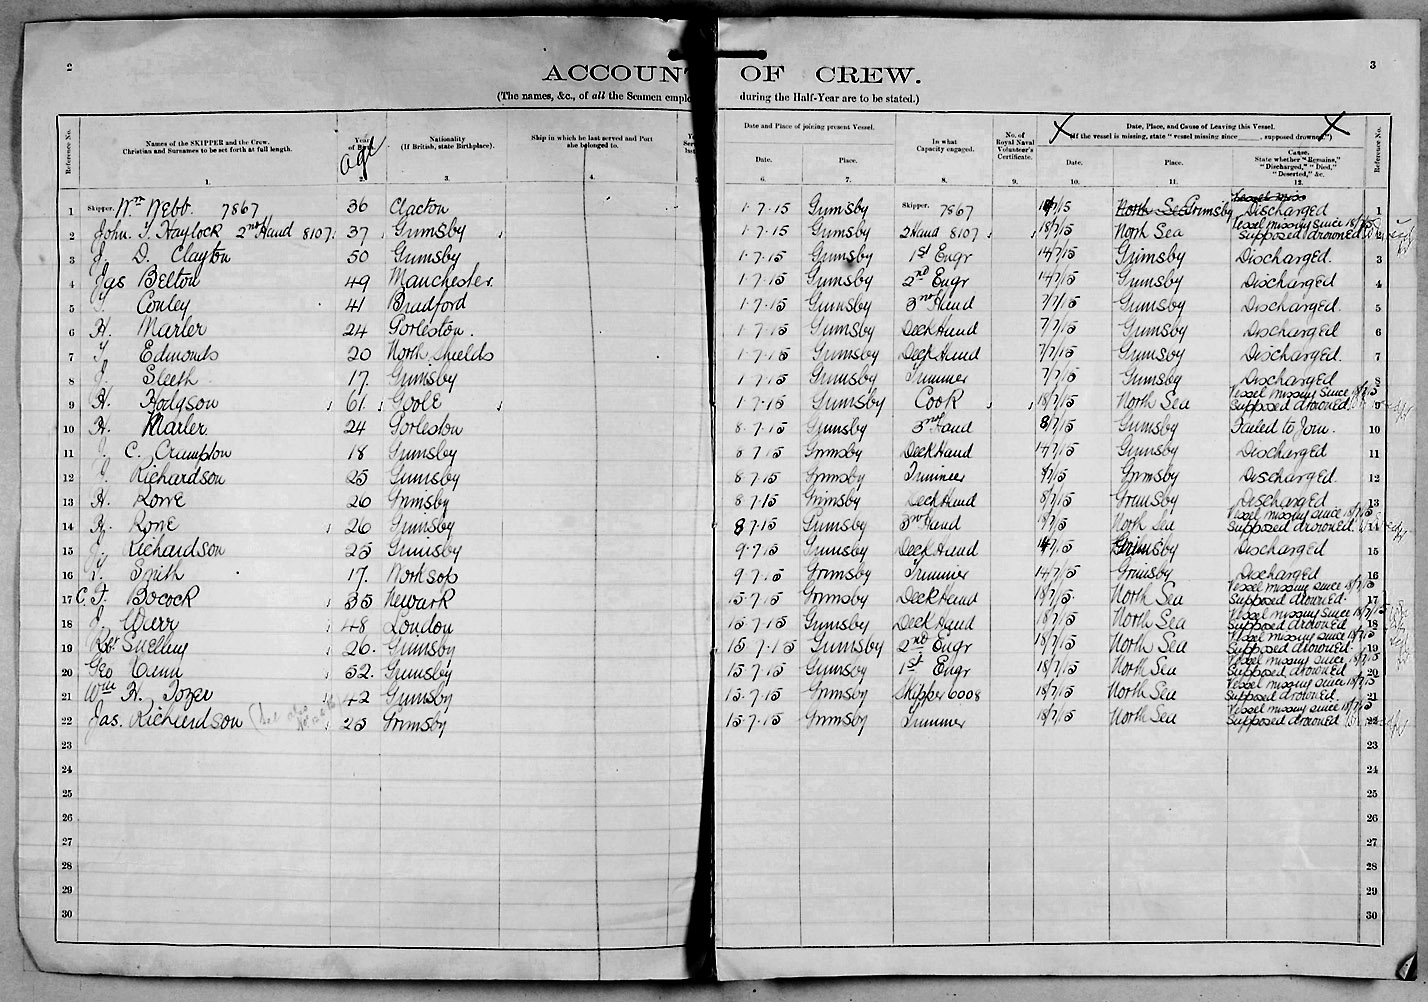 2
3
ACCOUNT OF CREW.
(The names, &c., of all the Seamen emplo during the Half-Year are to be stated.)
Reference No.
Names of the SKIPPER and the Crew.
Christian and Surnames to be set forth at full length.
1.
Year of Birth.
age
2.
Nationality
(If British, state Birthplace).
3.
Ship in which he last served and Port
she belonged to.
4.
Date and Place of joining present Vessel.
Date.
6.
Place.
7.
In what
Capacity engaged.
8.
No. of
Royal Naval
Volunteer's
Certificate.
9.
X Date, Place, and Cause of Leaving this Vessel. X
(If the vessel is missing, state "vessel missing since ____, supposed drowned.")
Date.
10.
Place.
11.
Cause.
State whether "Remains,"
"Discharged," "Died,"
"Deserted," &c.
12.
Reference No.
1 Skipper. Wm Webb. 7867 36 Clacton 1-7-15 Grimsby Skipper. 7867 7/15 North Sea Grimsby Vessel miss Discharged 1
2 John T. Haylock 2nd Hand 8107. 37 Grimsby 1-7-15 Grimsby 2 Hand 8107 18/7/15 North Sea Vessel missing since 18/7/15 Supposed drowned 2
3 J. D. Clayton 50 Grimsby 1-7-15 Grimsby 1st Engr 14/7/15 Grimsby Discharged. 3
4 Jas Belton 49 Manchester. 1-7-15 Grimsby 2nd Engr 14/7/15 Grimsby Discharged 4
5 T. Conley 41 Bradford 1-7-15 Grimsby 3rd Hand 7/7/15 Grimsby Discharged. 5
6 H. Marler 24 Gorleston. 1-7-15 Grimsby Deck Hand 7/7/15 Grimsby Discharged 6
7 T. Edmonds 20 North Shields 1-7-15 Grimsby Deck Hand 7/7/15 Grimsby Discharged. 7
8 J. Sleeth 17. Grimsby 1-7-15 Grimsby Trimmer 7/7/15 Grimsby Discharged 8
9 H. Hodgson 61. Goole 1-7-15 Grimsby Cook 18/7/15 North Sea Vessel missing since 18/7/15 Supposed drowned 9
10 H. Marler. 24 Gorleston 8-7-15 Grimsby 3rd Hand 8/7/15 Grimsby Failed to Join. 10
11 C. Crumpton 18 Grimsby 8 7 15 Grimsby Deck Hand 14/7/15 Grimsby Discharged 11
12 Richardson 25 Grimsby 8 7-15 Grimsby Trimmer 8/7/15 Grimsby Discharged. 12
13 H. Rowe 26 Grimsby 8 7/15 Grimsby Deck Hand 8/7/15 Grimsby Discharged 13
14 H. Rowe 26 Grimsby 8 7-15 Grimsby 3rd Hand 18/7/15 North Sea Vessel missing since 18/7/15 Supposed drowned. 14
15 J. Richardson 25 Grimsby 9-7-15 Grimsby Deck Hand 14/7/15 Grimsby Discharged 15
16 Smith 17. Worksop 9 7-15 Grimsby Trimmer 14/7/15 Grimsby Discharged 16
17 C. F. Bocock 35 Newark 15-7-15 Grimsby Deck Hand 18/7/15. North Sea Vessel missing since 18/7/15 Supposed drowned. 17
18 J. Warr 48 London 15-7-15 Grimsby Deck Hand 18/7/15 North Sea Vessel missing since 18/7/15 Supposed drowned. 18
19 Robt Snelling 26. Grimsby 15-7-15 Grimsby 2nd Engr 18/7/15 North Sea Vessel missing since 18/7/15 Supposed drowned. 19
20 Geo Cann 52. Grimsby 15-7-15 Grimsby 1st Engr 18/7/15 North Sea Vessel missing since 18/7/15 Supposed drowned 20
21 Wm H. Tozer 42 Grimsby 15-7-15 Grimsby Skipper 6008 18/7/15 North Sea Vessel missing since 18/7/15 Supposed drowned. 21
22 Jas. Richardson 25 Grimsby 15-7-15 Grimsby Trimmer 18/7/15 North Sea Vessel missing since 18/7/15 Supposed drowned 22
23 23
24 24
25 25
26 26
27 27
28 28
29 29
30 30